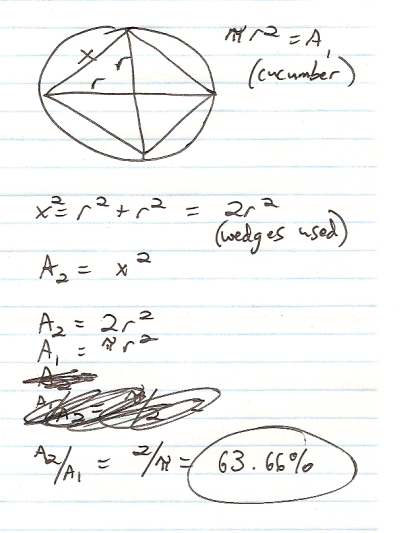 πr² = A₁
(cucumber)
x
r
r
x² = r² + r² = 2r²
(wedges used)
A₂ = x²
A₂ = 2r²
A₁ = πr²
A₂/A₁ = 2/π = 63.66%